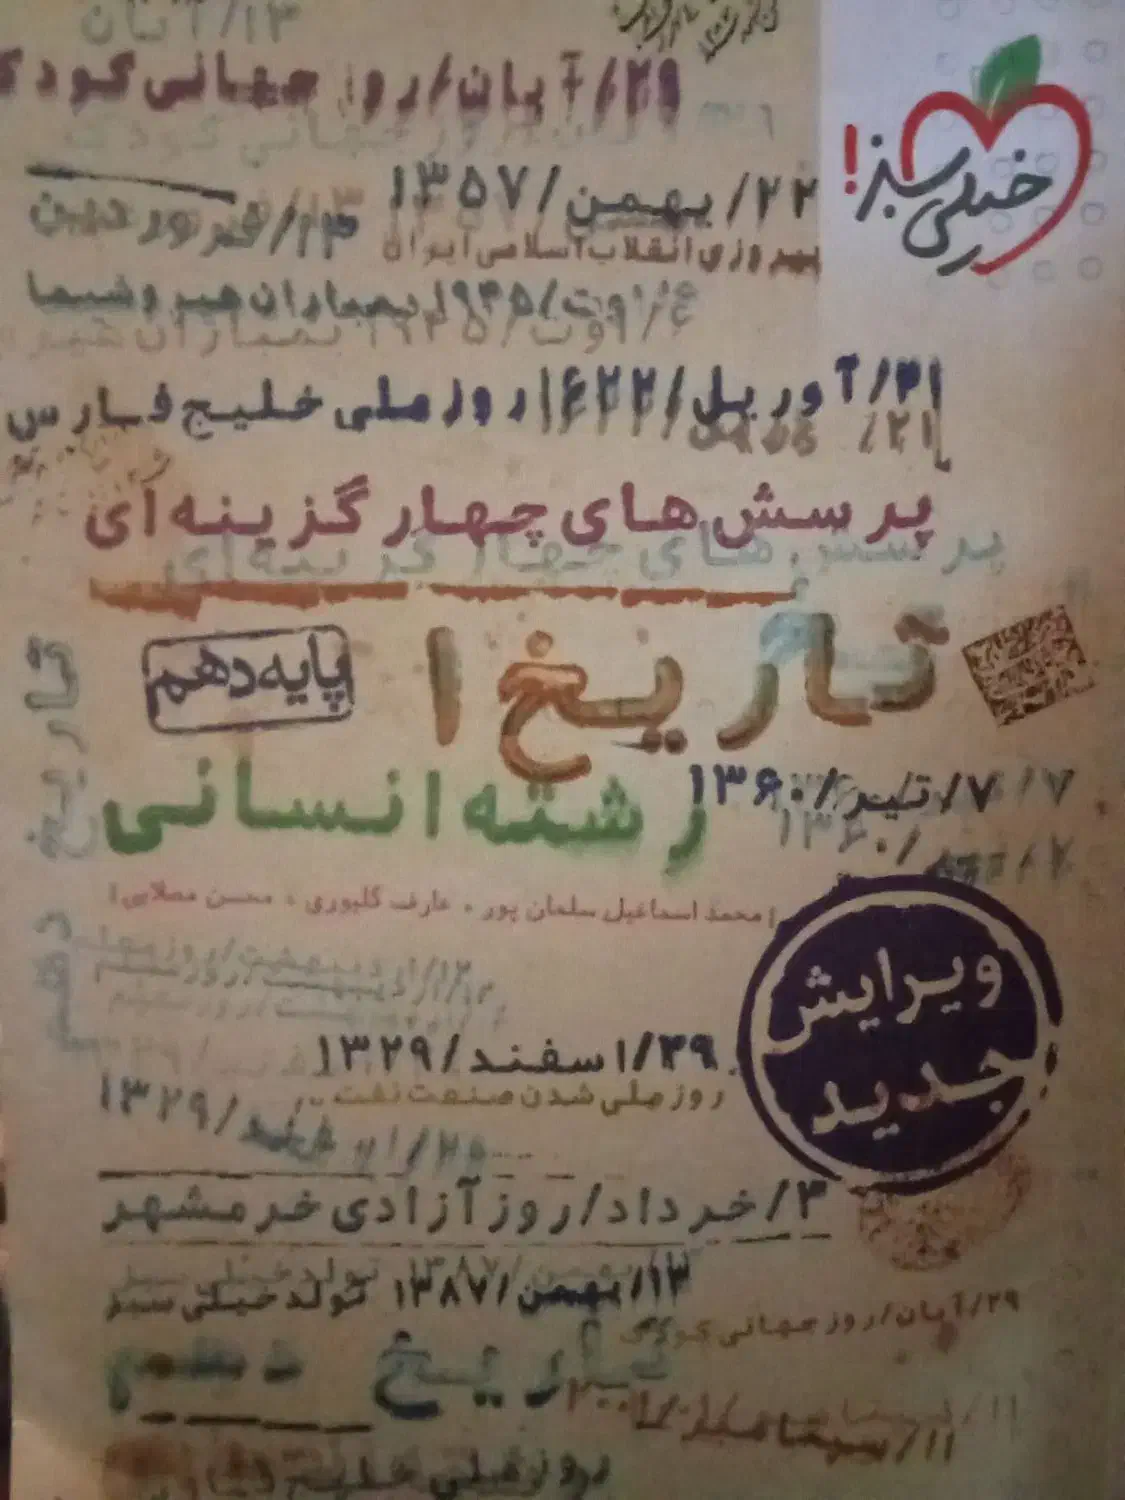 ۱۳/آبان
۲۹/آبان/روز جهانی کودک
خیلی سبز!
۲۲/بهمن/۱۳۵۷
۱۳/فروردین
پیروزی انقلاب اسلامی ایران
۶/اوت/۱۹۴۵/بمباران هیروشیما
۲۱/آوریل/۱۶۲۲/روز ملی خلیج فارس
پرسش‌های چهار گزینه‌ای
تاریخ ۱
پایه دهم
تاریخ دهم
۷/تیر/۱۳۶۰
رشته انسانی
| محمد اسماعیل سلمان پور • عارف گلپوری • محسن مصلایی |
ویرایش
جدید
۲۹/اسفند/۱۳۲۹
روز ملی شدن صنعت نفت
۱۳۲۹/
۳/خرداد/روز آزادی خرمشهر
۱۳/بهمن/۱۳۸۷ تولد خیلی سبز
۲۹/آبان/روز جهانی کودک
تاریخ دهم
۱۱/سپتامبر/۲۰۰۱
روز ملی خلیج فارس